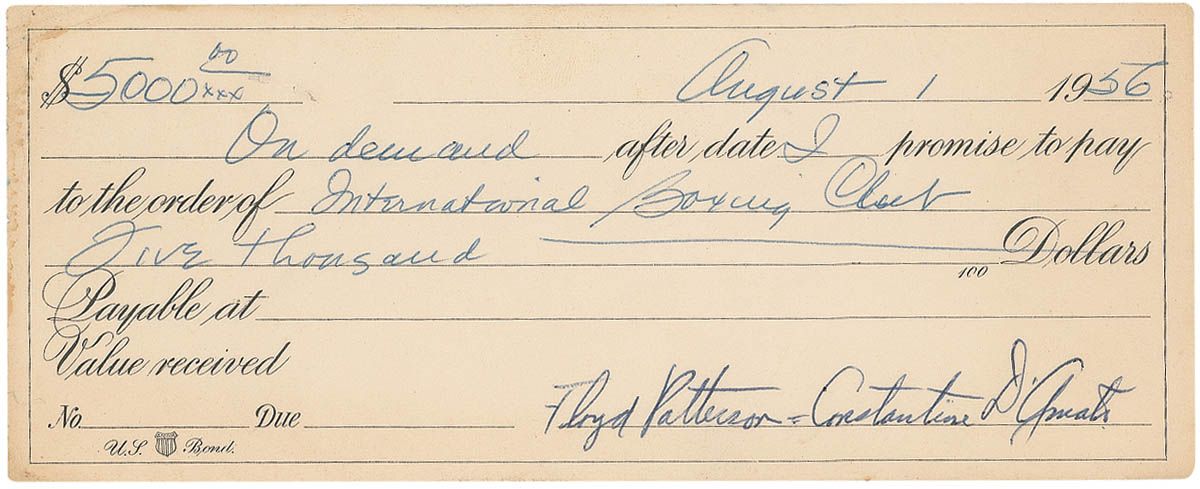 $5000 00/xxx August 1 1956
On demand after date I promise to pay
to the order of International Boxing Club
Five thousand 100 Dollars
Payable at
Value received
Floyd Patterson = Constantine D'Amato
No. Due
U.S. Bond.